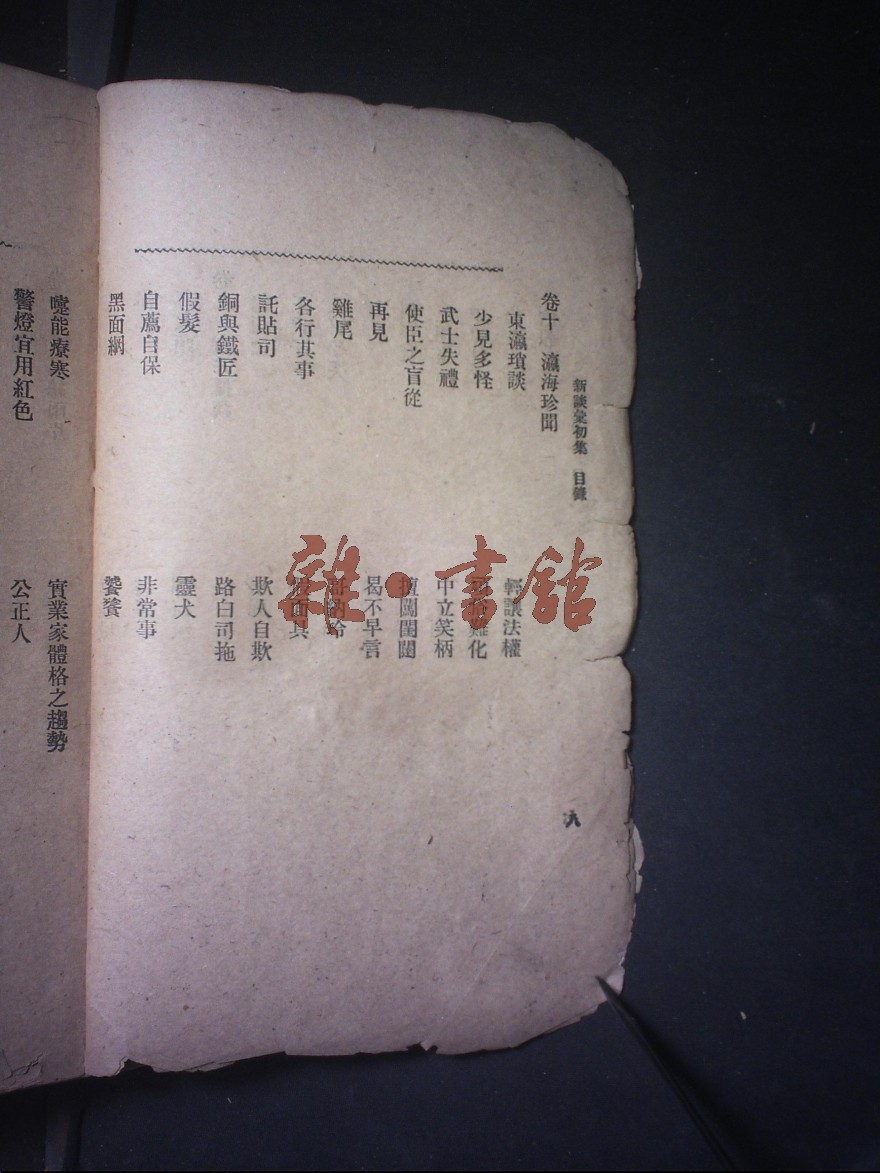 新談彙初集 目錄
八
卷十 瀛海珍聞
東瀛瑣談
輕讓法權
少見多怪
難化
武士失禮
中立笑柄
使臣之盲從
擅闖閨闥
再見
曷不早言
雞尾
各行其事
假面具
託貼司
欺人自欺
銅與鐵匠
路白司拖
假髮
靈犬
自薦自保
非常事
黑面網
饕餮
嚏能療寒
實業家體格之趨勢
警燈宜用紅色
公正人
雜·書館